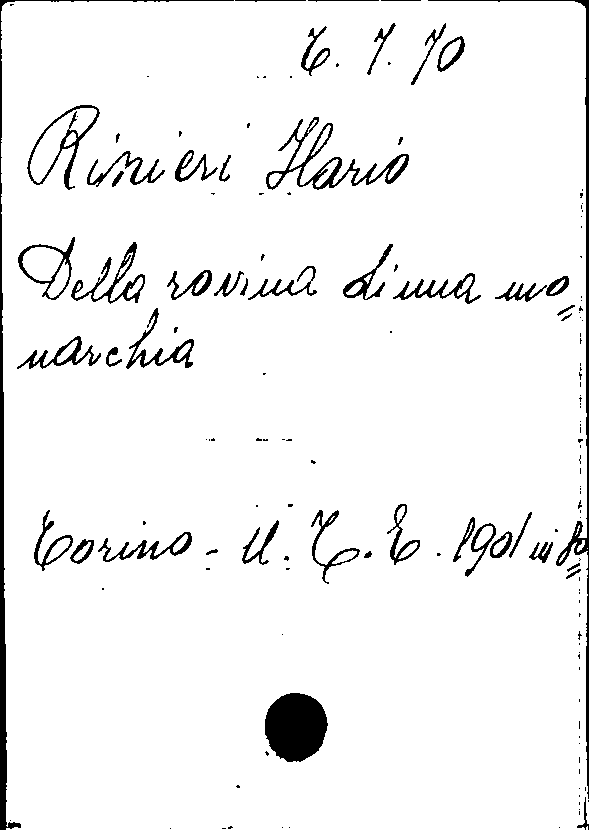 6. 7. 70
Rinieri Ilario
Della rovina di una mo=
narchia
Torino - U. T. E. 1901 in 8º